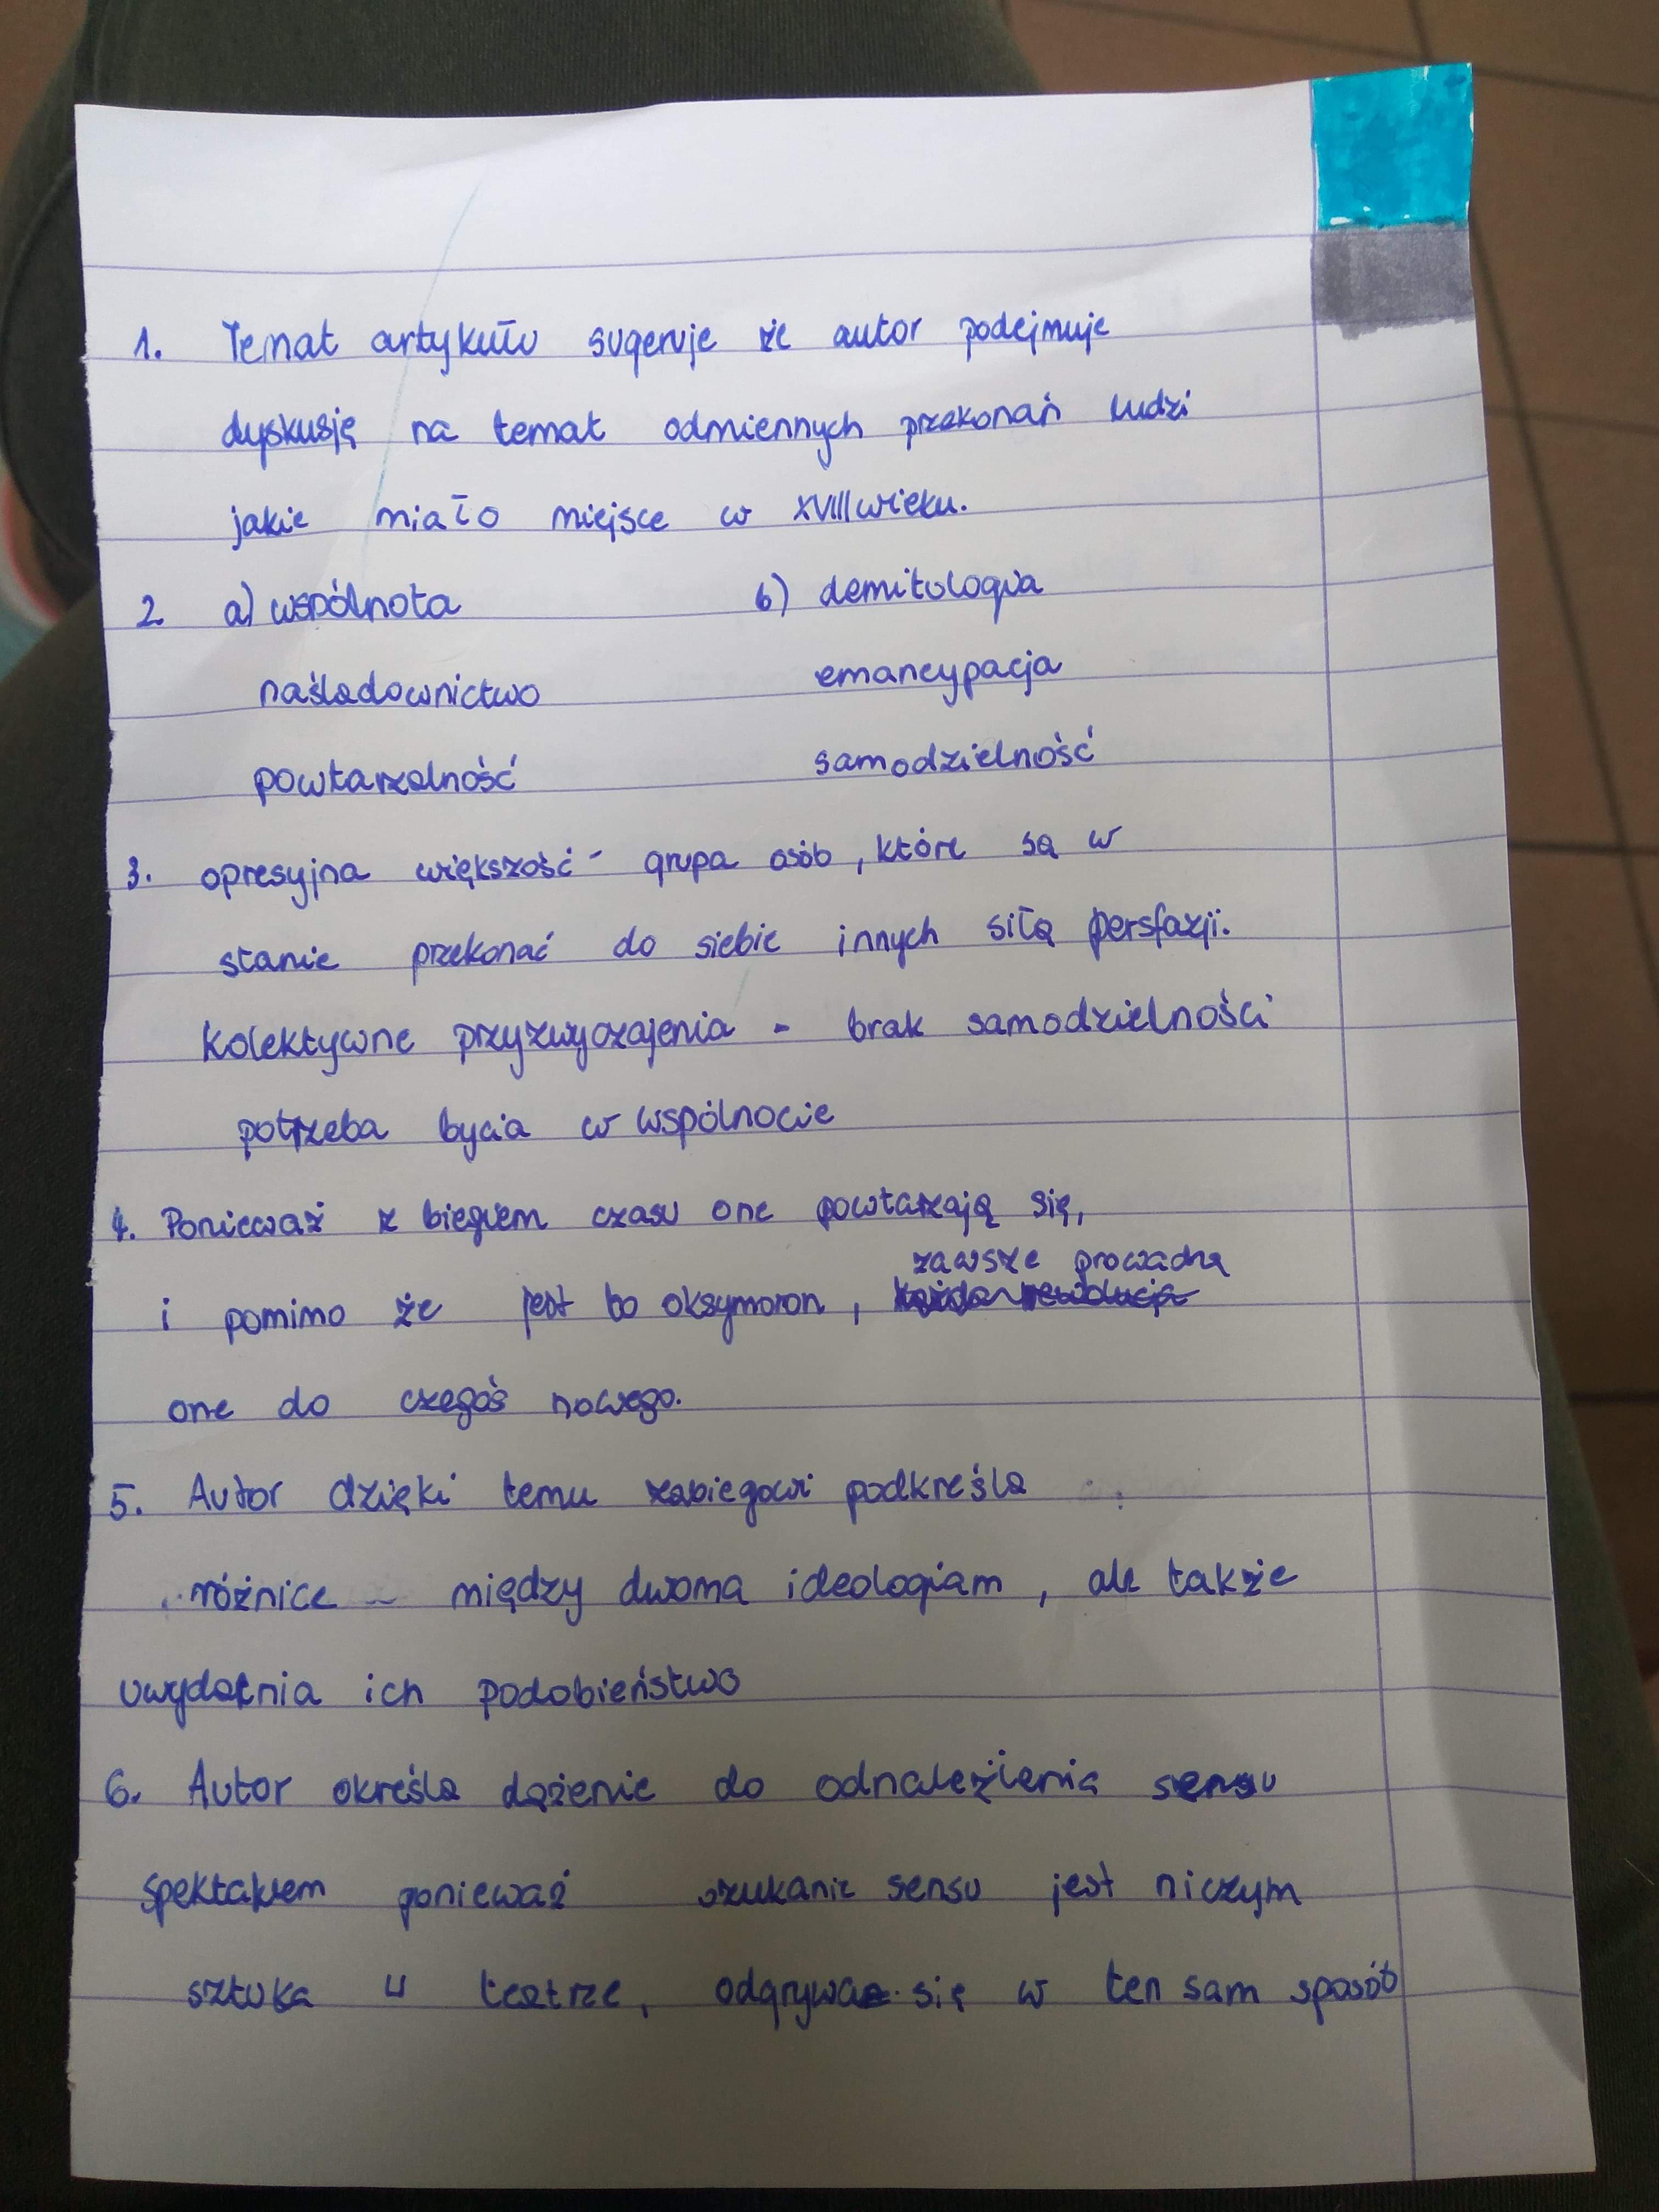 1. Temat artykułu sugeruje że autor podejmuje
dyskusję na temat odmiennych przekonań ludzi
jakie miało miejsce w XVIII wieku.
2. a) wspólnota b) demitologia
naśladownictwo emancypacja
powtarzalność samodzielność
3. opresyjna większość - grupa osób, które są w
stanie przekonać do siebie innych siłą persfazji.
kolektywne przyzwyczajenia - brak samodzielności
potrzeba bycia w wspólnocie
4. Ponieważ z biegiem czasu one powtarzają się,
zawsze prowadzą
i pomimo że jest to oksymoron,
one do czegoś nowego.
5. Autor dzięki temu zabiegowi podkreśla
różnice między dwoma ideologiam, ale także
uwydatnia ich podobieństwo
6. Autor określa dążenie do odnaleźienia sensu
spektaklem ponieważ szukanie sensu jest niczym
sztuka u teatrze, odgrywa się w ten sam sposób